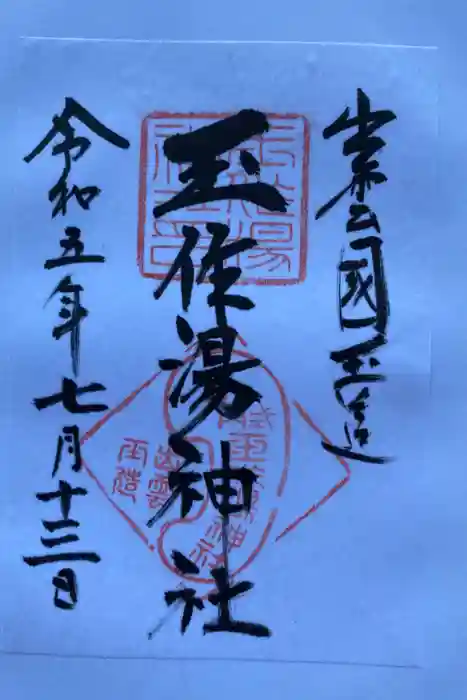 出雲國玉造
玉作湯神社
令和五年七月十三日
玉作湯神社印
出雲玉造